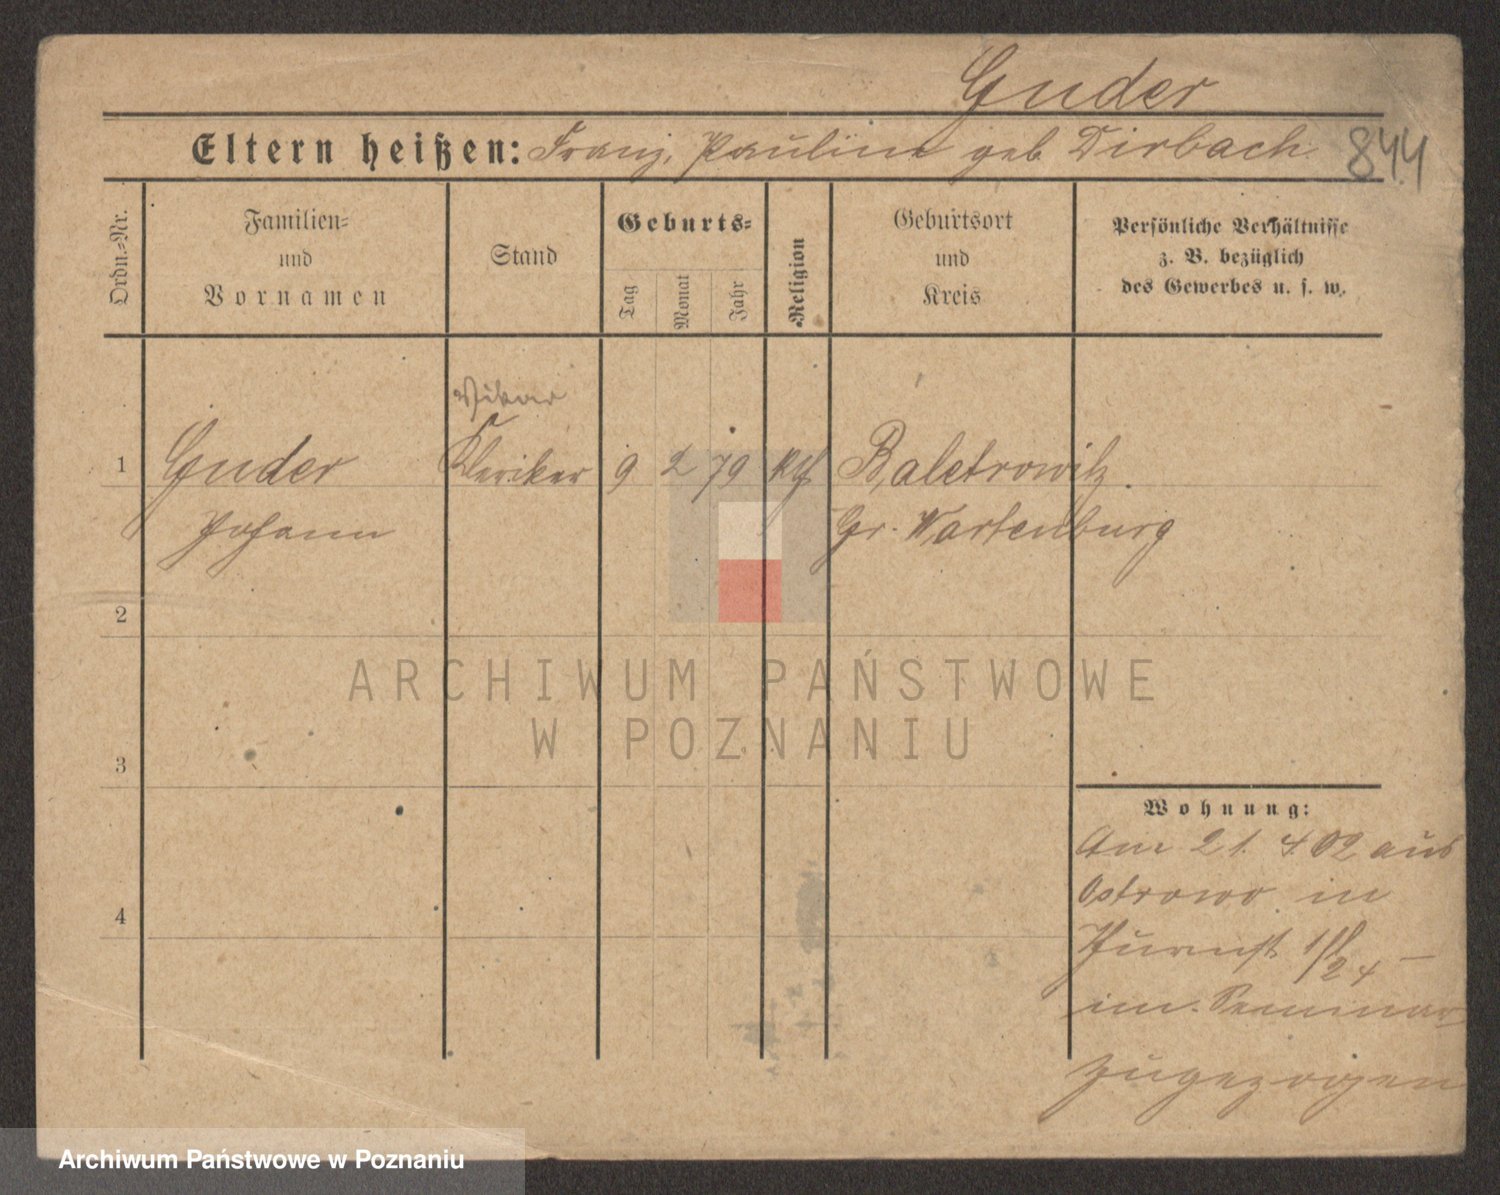 Guder
Eltern heißen: Franz, Pauline geb Dirbach
844
Ordn.=Nr.
Familien=
und
Vornamen
Stand
Geburts=
Tag
Monat
Jahr
Religion
Geburtsort
und
Kreis
Persönliche Verhältnisse
z. B. bezüglich
des Gewerbes u. s. w.
Vikar
1 Guder Kleriker 9 2 79 Kth Baletrowitz.
Johann Gr. Wartenburg
2
3
4
Wohnung:
Am 21. 4. 02 aus
Ostrowo in
im Seminar
zugezogen
ARCHIWUM PAŃSTWOWE
W POZNANIU
Archiwum Państwowe w Poznaniu